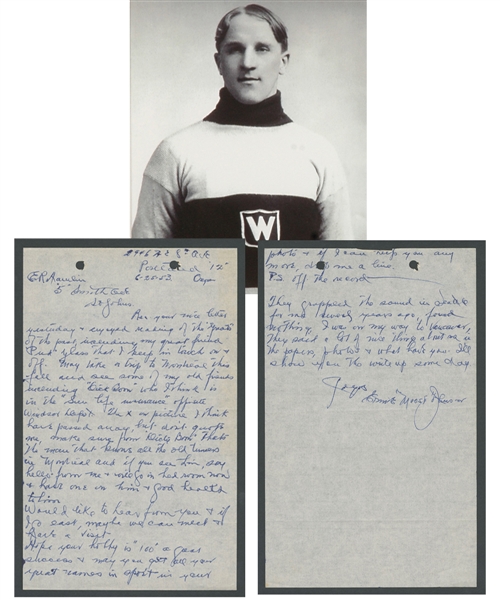 W
Portland "12"
6-20-53
E.R. Hamlin
5 Smith Ave
St Johns
Bar your nice letter
yesterday & enjoyed reading of the "greats
of the past, including my great friend
that I keep in touch on &
off. may take a trip to Montreal this
fall and see some of my old friends
including "Dick Bon" who I think is
in the Sun life insurance office
Windsor Dept. The X on picture I think
have passed away but don't quote
me, make sure from Dickie Bon. Thats
the man that knows all the old timers
in Montreal and if you see him, say
hello from me &
& have one on him & good health
to him
Would like to hear from you & if
I go east, maybe we can meet &
have a visit.
Hope your hobby is "100" a great
success & may you get all your
great names in sport in your
photo & if I can help you any
more, drop me a line.
P.S. off the record
They grappled the sound in Seattle
for me several years ago, found
nothing, I was on my way to Vancouver,
They said a lot of nice things about me in
the papers, photos & what have you. I'll
show you the write up some day
"Moose" Johnson